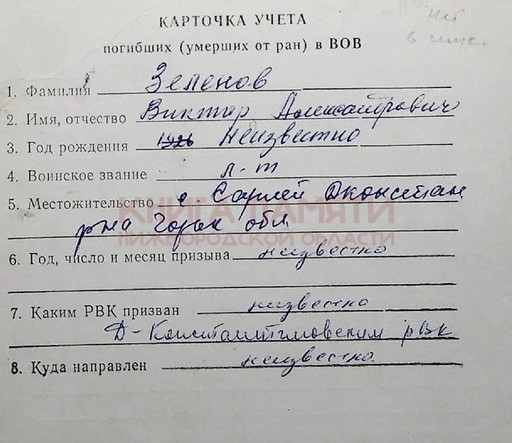 Нет
в списк
КАРТОЧКА УЧЕТА
погибших (умерших от ран) в ВОВ
1. Фамилия Зеленов
2. Имя, отчество Виктор Александрович
3. Год рождения 1926 Неизвестно
4. Воинское звание л-т
5. Местожительство с Сарлей Дконстан
КНИГА ПАМЯТИ
р-на Горьк обл.
НИЖЕГОРОДСКОЙ ОБЛАСТИ
6. Год, число и месяц призыва неизвестно
7. Каким РВК призван неизвестно
Д-Константиновским рвк
8. Куда направлен неизвестно